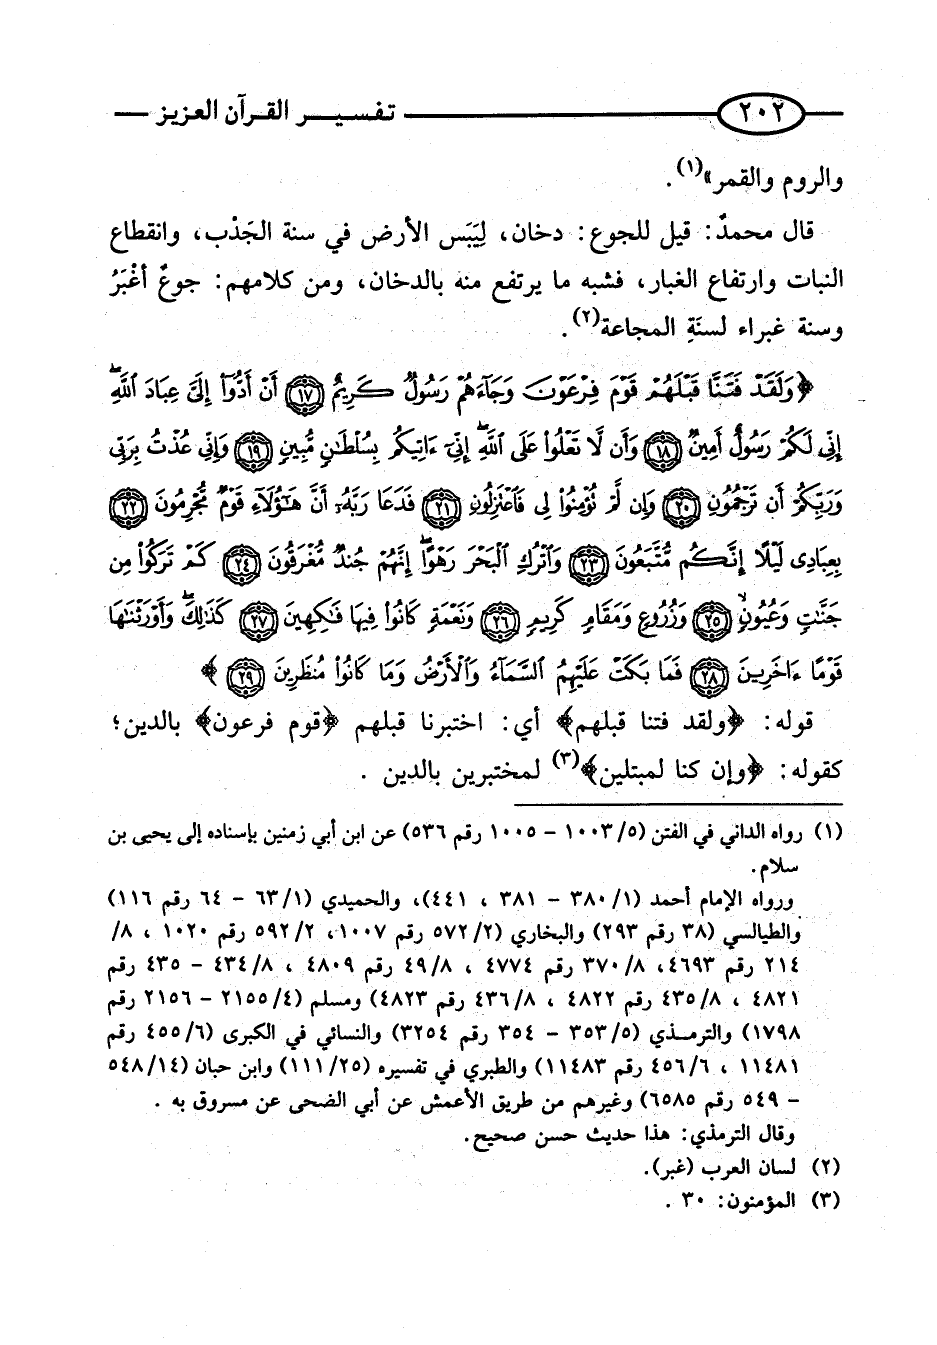 ٢٠٢ تفسير القرآن العزيز
والروم والقمر»(١).
قال محمدٌ: قيل للجوع: دخان، لِيَبَس الأرض في سنة الجَدْب، وانقطاع
النبات وارتفاع الغبار، فشبه ما يرتفع منه بالدخان، ومن كلامهم: جوعٌ أغْبَرُ
وسنة غبراء لسنَةِ المجاعة(٢).
﴿وَلَقَدْ فَتَنَّا قَبْلَهُمْ قَوْمَ فِرْعَوْنَ وَجَاءَهُمْ رَسُولٌ كَرِيمٌ ﴿١٧﴾ أَنْ أَدُّوا إِلَيَّ عِبَادَ اللَّهِ
إِنِّي لَكُمْ رَسُولٌ أَمِينٌ ﴿١٨﴾ وَأَن لَّا تَعْلُوا عَلَى اللَّهِ إِنِّي ءَاتِيكُم بِسُلْطَانٍ مُّبِينٍ ﴿١٩﴾ وَإِنِّي عُذْتُ بِرَبِّي
وَرَبِّكُمْ أَن تَرْجُمُونِ ﴿٢٠﴾ وَإِن لَّمْ تُؤْمِنُوا لِي فَاعْتَزِلُونِ ﴿٢١﴾ فَدَعَا رَبَّهُ أَنَّ هَٰؤُلَاءِ قَوْمٌ مُّجْرِمُونَ ﴿٢٢﴾
بِعِبَادِي لَيْلًا إِنَّكُم مُّتَّبَعُونَ ﴿٢٣﴾ وَاتْرُكِ الْبَحْرَ رَهْوًا إِنَّهُمْ جُندٌ مُّغْرَقُونَ ﴿٢٤﴾ كَمْ تَرَكُوا مِن
جَنَّاتٍ وَعُيُونٍ ﴿٢٥﴾ وَزُرُوعٍ وَمَقَامٍ كَرِيمٍ ﴿٢٦﴾ وَنَعْمَةٍ كَانُوا فِيهَا فَاكِهِينَ ﴿٢٧﴾ كَذَٰلِكَ وَأَوْرَثْنَاهَا
قَوْمًا ءَاخَرِينَ ﴿٢٨﴾ فَمَا بَكَتْ عَلَيْهِمُ السَّمَاءُ وَالْأَرْضُ وَمَا كَانُوا مُنظَرِينَ ﴿٢٩﴾﴾
قوله: ﴿ولقد فتنا قبلهم﴾ أي: اختبرنا قبلهم ﴿قوم فرعون﴾ بالدين؛
كقوله: ﴿وإن كنا لمبتلين﴾(٣) لمختبرين بالدين .
(١) رواه الداني في الفتن (٥/ ١٠٠٣ – ١٠٠٥ رقم ٥٣٦) عن ابن أبي زمنين بإسناده إلى يحيى بن
سلام.
ورواه الإمام أحمد (١/ ٣٨٠ – ٣٨١ ، ٤٤١)، والحميدي (١/ ٦٣ – ٦٤ رقم ١١٦)
والطيالسي (٣٨ رقم ٢٩٣) والبخاري (٢/ ٥٧٢ رقم ١٠٠٧، ٢/ ٥٩٢ رقم ١٠٢٠ ، ٨/
٢١٤ رقم ٤٦٩٣، ٨/ ٣٧٠ رقم ٤٧٧٤ ، ٨/ ٤٩ رقم ٤٨٠٩ ، ٨/ ٤٣٤ – ٤٣٥ رقم
٤٨٢١ ، ٨/ ٤٣٥ رقم ٤٨٢٢ ، ٨/ ٤٣٦ رقم ٤٨٢٣) ومسلم (٤/ ٢١٥٥ – ٢١٥٦ رقم
١٧٩٨) والترمذي (٥/ ٣٥٣ – ٣٥٤ رقم ٣٢٥٤) والنسائي في الكبرى (٦/ ٤٥٥ رقم
١١٤٨١ ، ٦/ ٤٥٦ رقم ١١٤٨٣) والطبري في تفسيره (٢٥/ ١١١) وابن حبان (١٤/ ٥٤٨
– ٥٤٩ رقم ٦٥٨٥) وغيرهم من طريق الأعمش عن أبي الضحى عن مسروق به .
وقال الترمذي: هذا حديث حسن صحيح.
(٢) لسان العرب (غبر).
(٣) المؤمنون: ٣٠ .